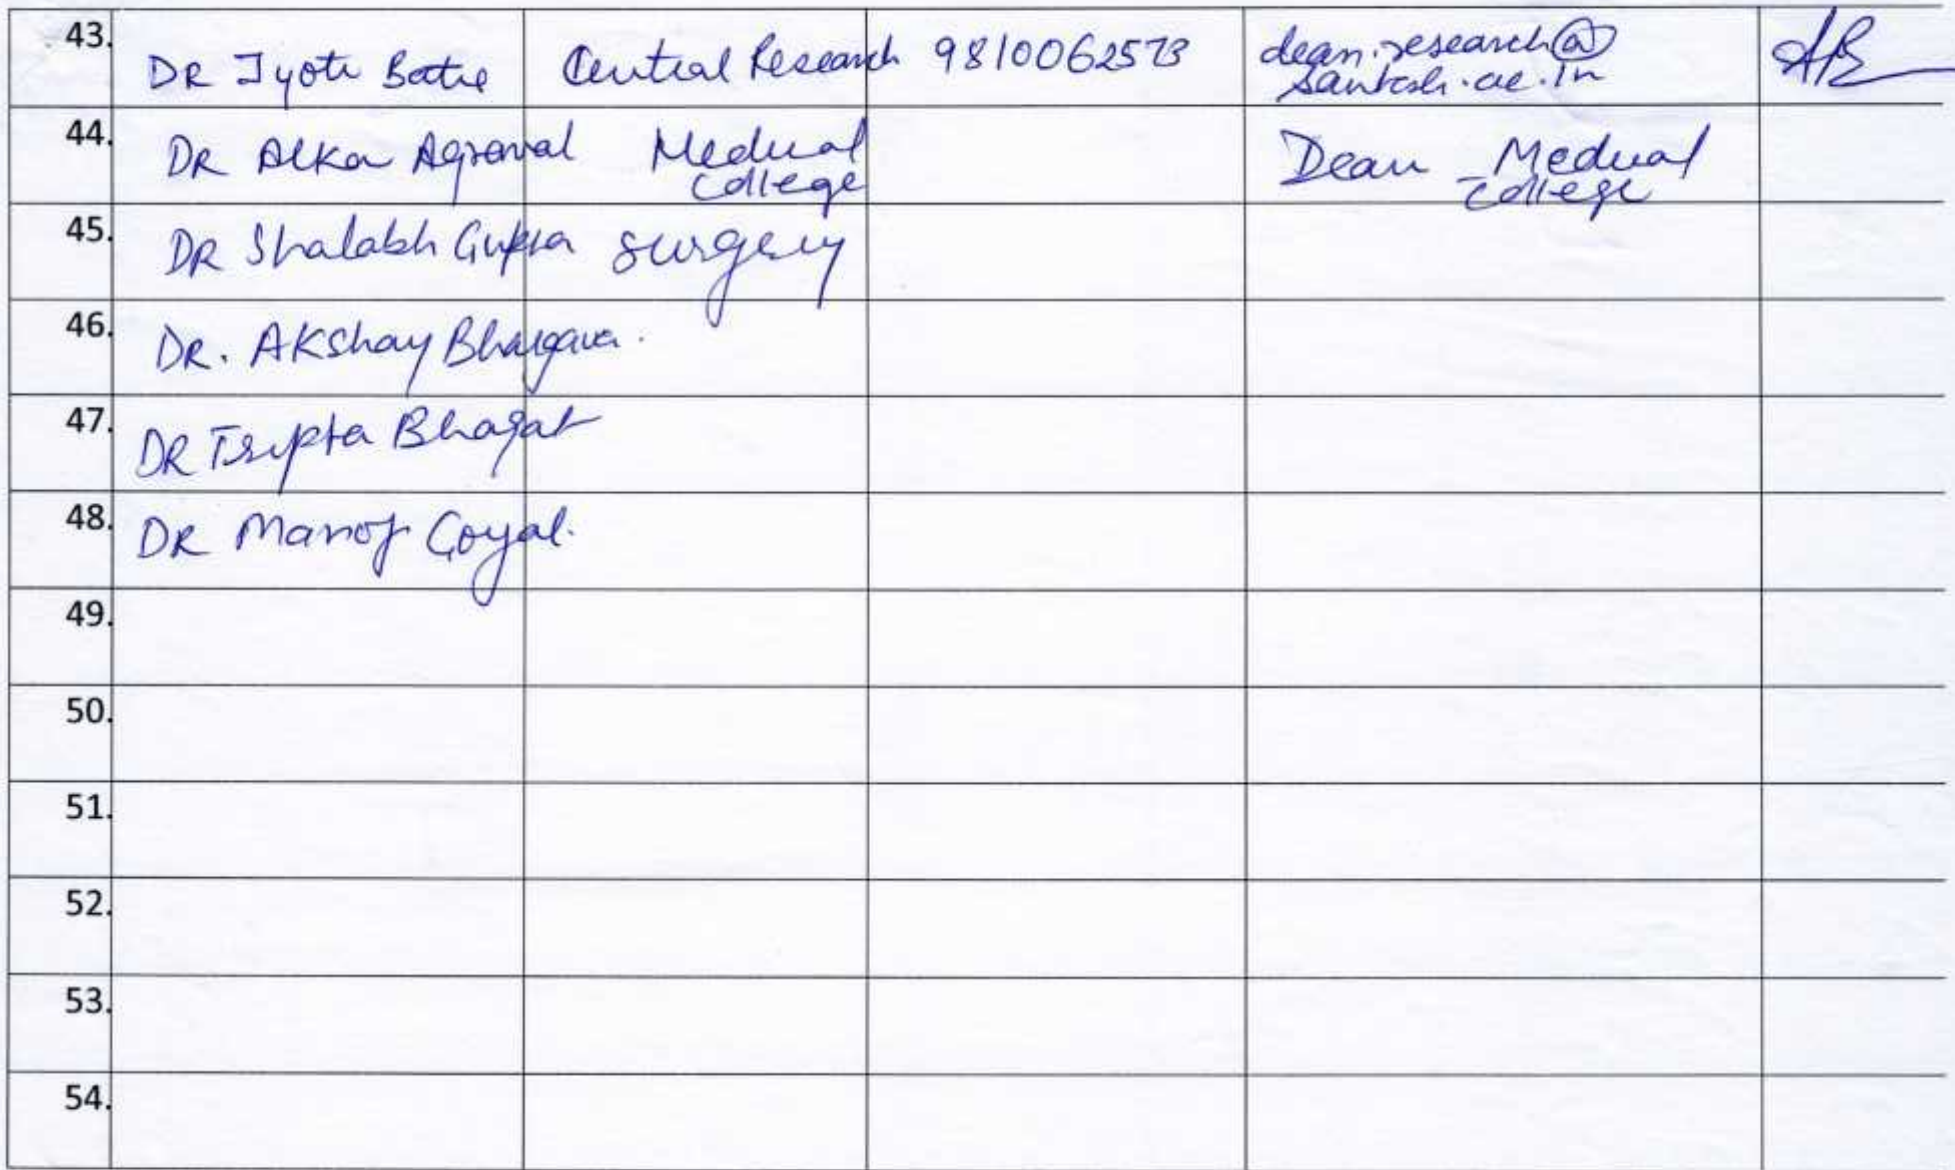 43. DR Jyoti Batra Central Research 9810062573 dean.research@
santosh.ac.in
44. DR Alka Agrawal Medical Dean Medical
college college
45. DR Shalabh Gupta surgery
46. DR. Akshay Bhargava.
47. DR Tripta Bhagat
48. DR Manoj Goyal.
49.
50.
51.
52.
53.
54.